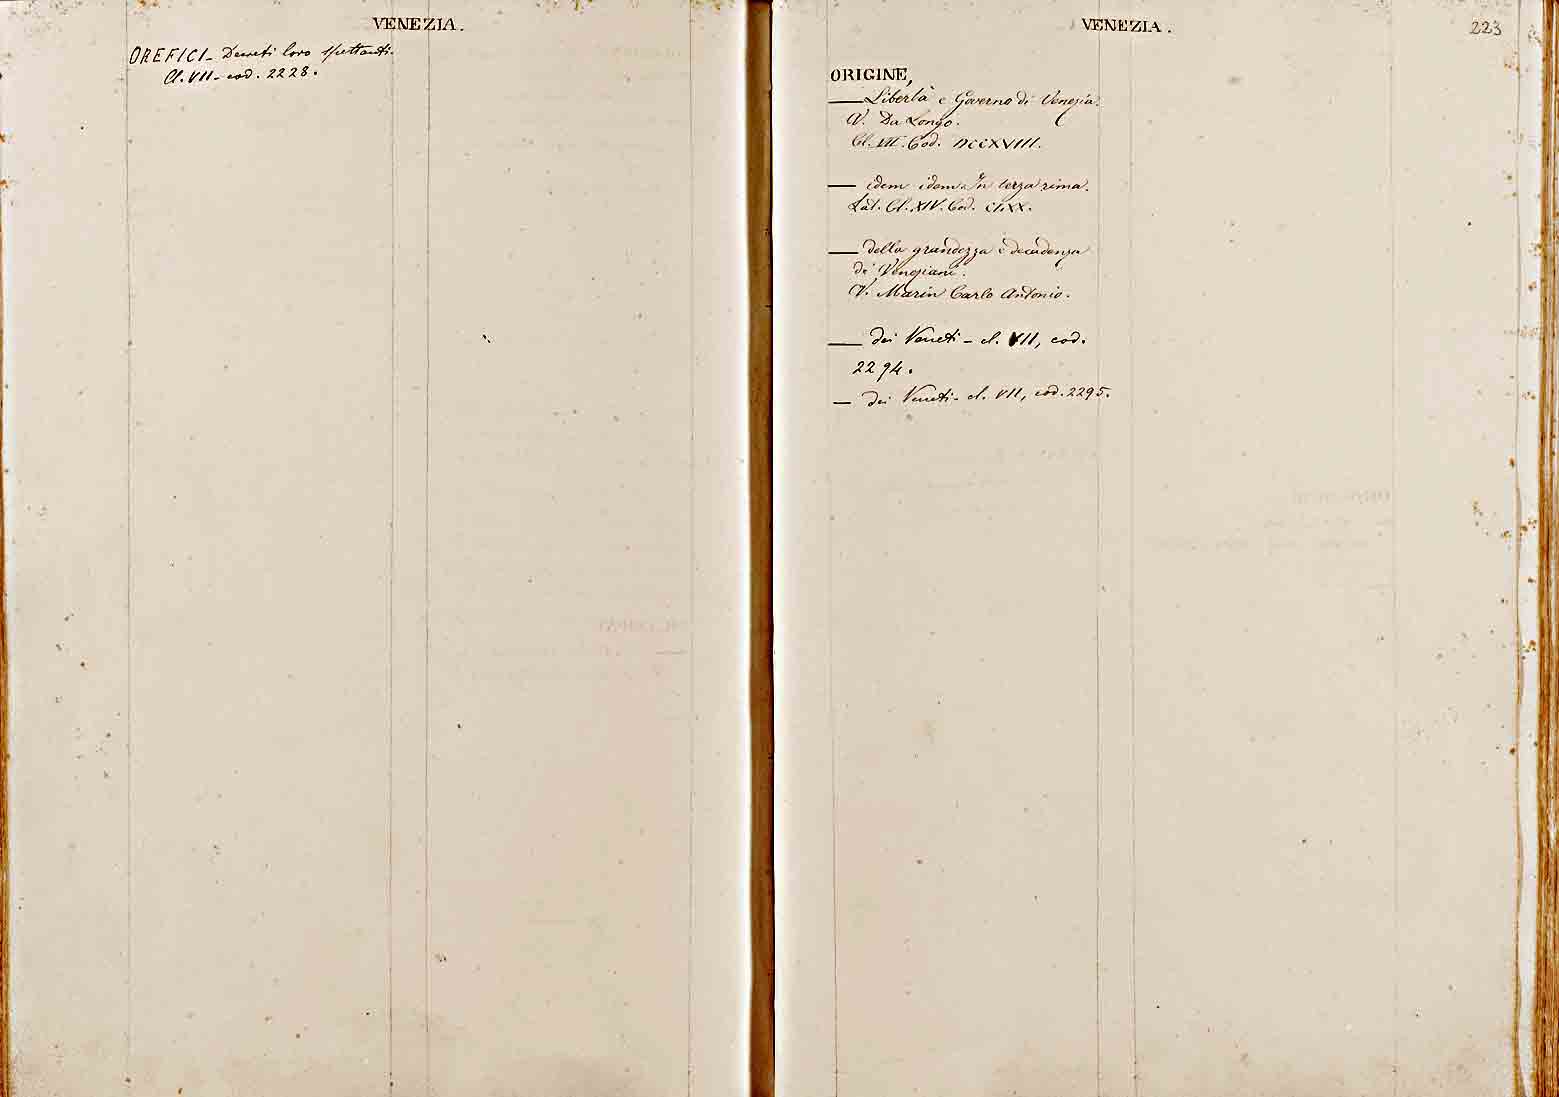 VENEZIA.
OREFICI - Decreti loro spettanti.
Cl. VII - cod. 2228.
VENEZIA.
223
ORIGINE,
— Libertà e Governo di Venezia.
V. Da Longo.
Cl. VII. Cod. DCCXVIII.
— idem idem In terza rima.
Lat. Cl. XIV. Cod. CLXX.
— della grandezza e decadenza
de' Veneziani.
V. Marin Carlo Antonio.
— dei Veneti - cl. VII, cod.
2294.
— dei Veneti - cl. VII, cod. 2295.